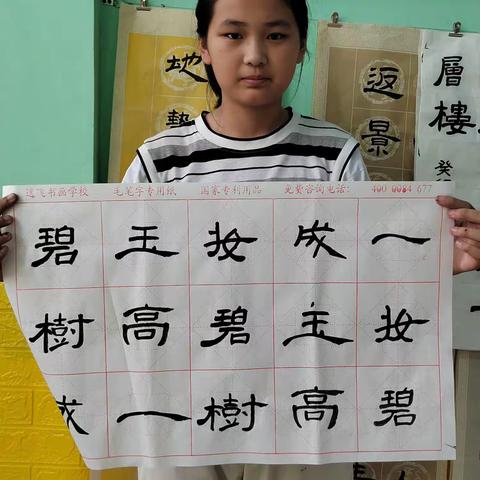 飞书画学校 毛笔字专用纸 国家专利用品 免费咨询电话: 400 0084 677
碧玉妆成一
樹高碧玉妆
成一樹高碧
地
勢
返
景
層
樓
癸